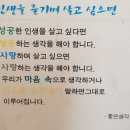 인생을 즐기며 살고 싶으면
성공한 인생을 살고 싶다면
성공하는 생각을 해야 합니다.
사랑하며 살고 싶다면
사랑하는 생각을 해야 합니다.
우리가 마음 속으로 생각하거나
말하면그대로
이루어집니다.
-좋은생각